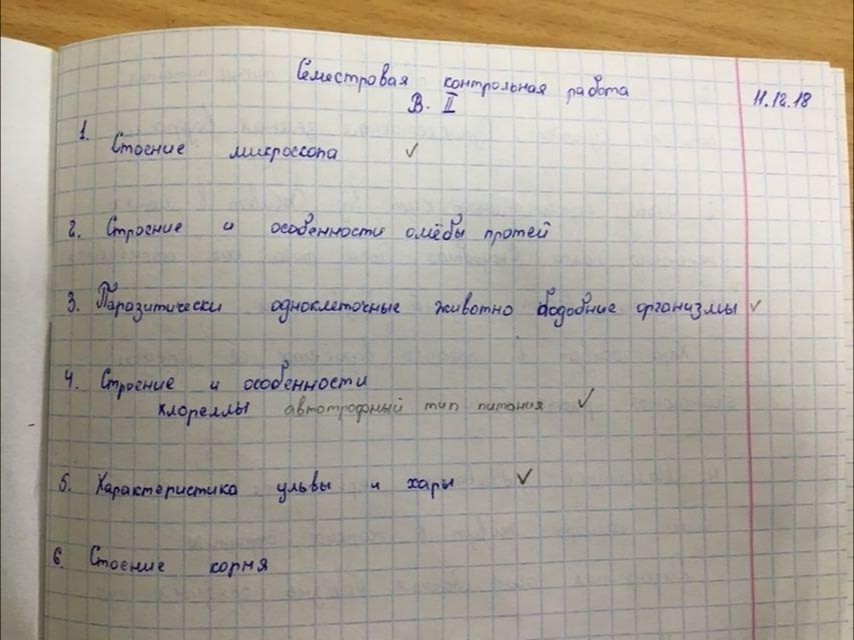 Семестровая контрольная работа
В. II
11.12.18
1. Стоение микроскопа ✓
2. Строение и особенности омёбы протей
3. Паразитически одноклеточные животно бодобние организмы ✓
4. Строение и особенности
хлореллы автотрофный тип питания ✓
5. Характеристика ульвы и хары ✓
6. Стоение корня